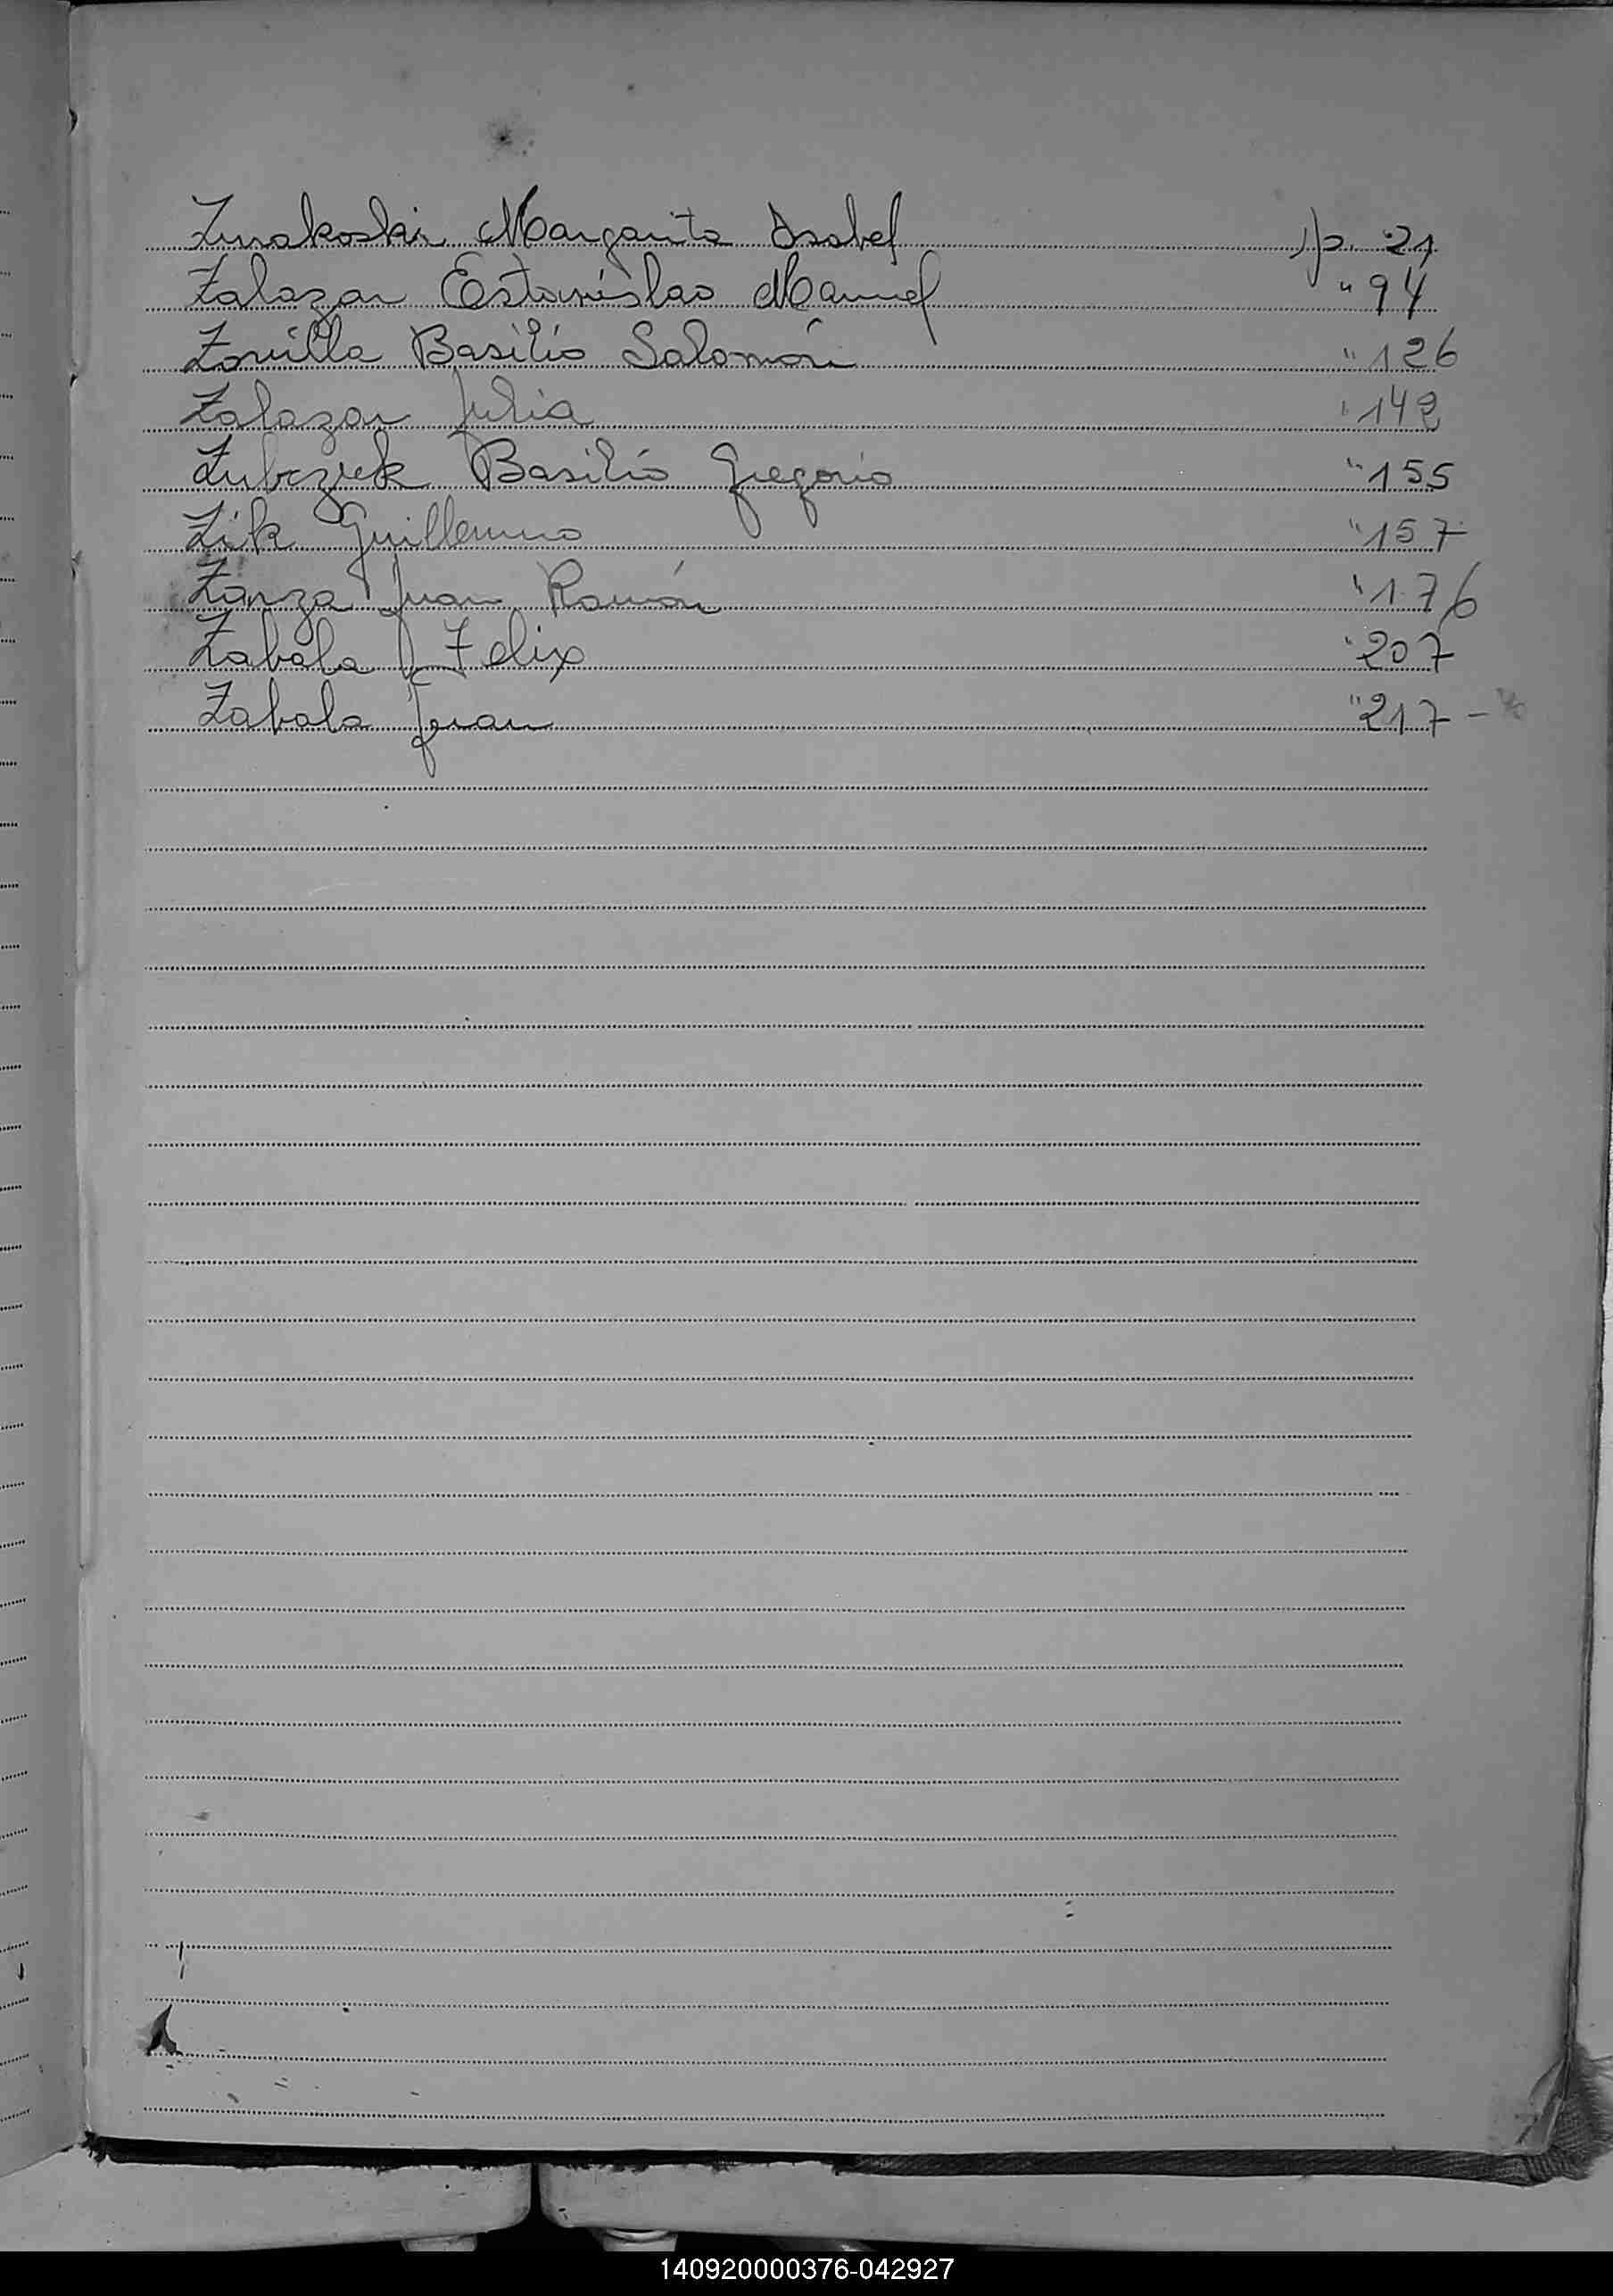 Zurakoski Margarita Isabel p. 21
Zalazar Estanislao Manuel " 94
Zorrilla Basilio Salomón " 126
Zalazar Julia " 142
Zubczuk Basilio Gregorio " 155
Zik Guillermo " 157
Zanza Juan Ramón " 176
Zabala Felix " 207
Zabala Juan " 217 -
140920000376-042927